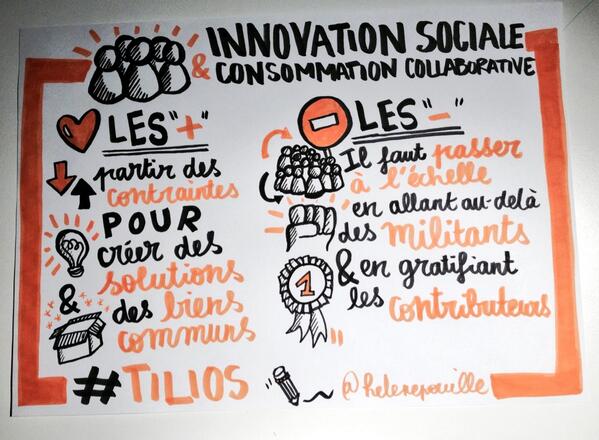 INNOVATION SOCIALE
& CONSOMMATION COLLABORATIVE
LES "+"
partir des
contraintes
POUR
créer des
solutions
& des biens
communs
#TILIOS
LES "-"
Il faut passer
à l'échelle
en allant au-delà
des militants
& en gratifiant
les contributeurs
1
@helenepouille